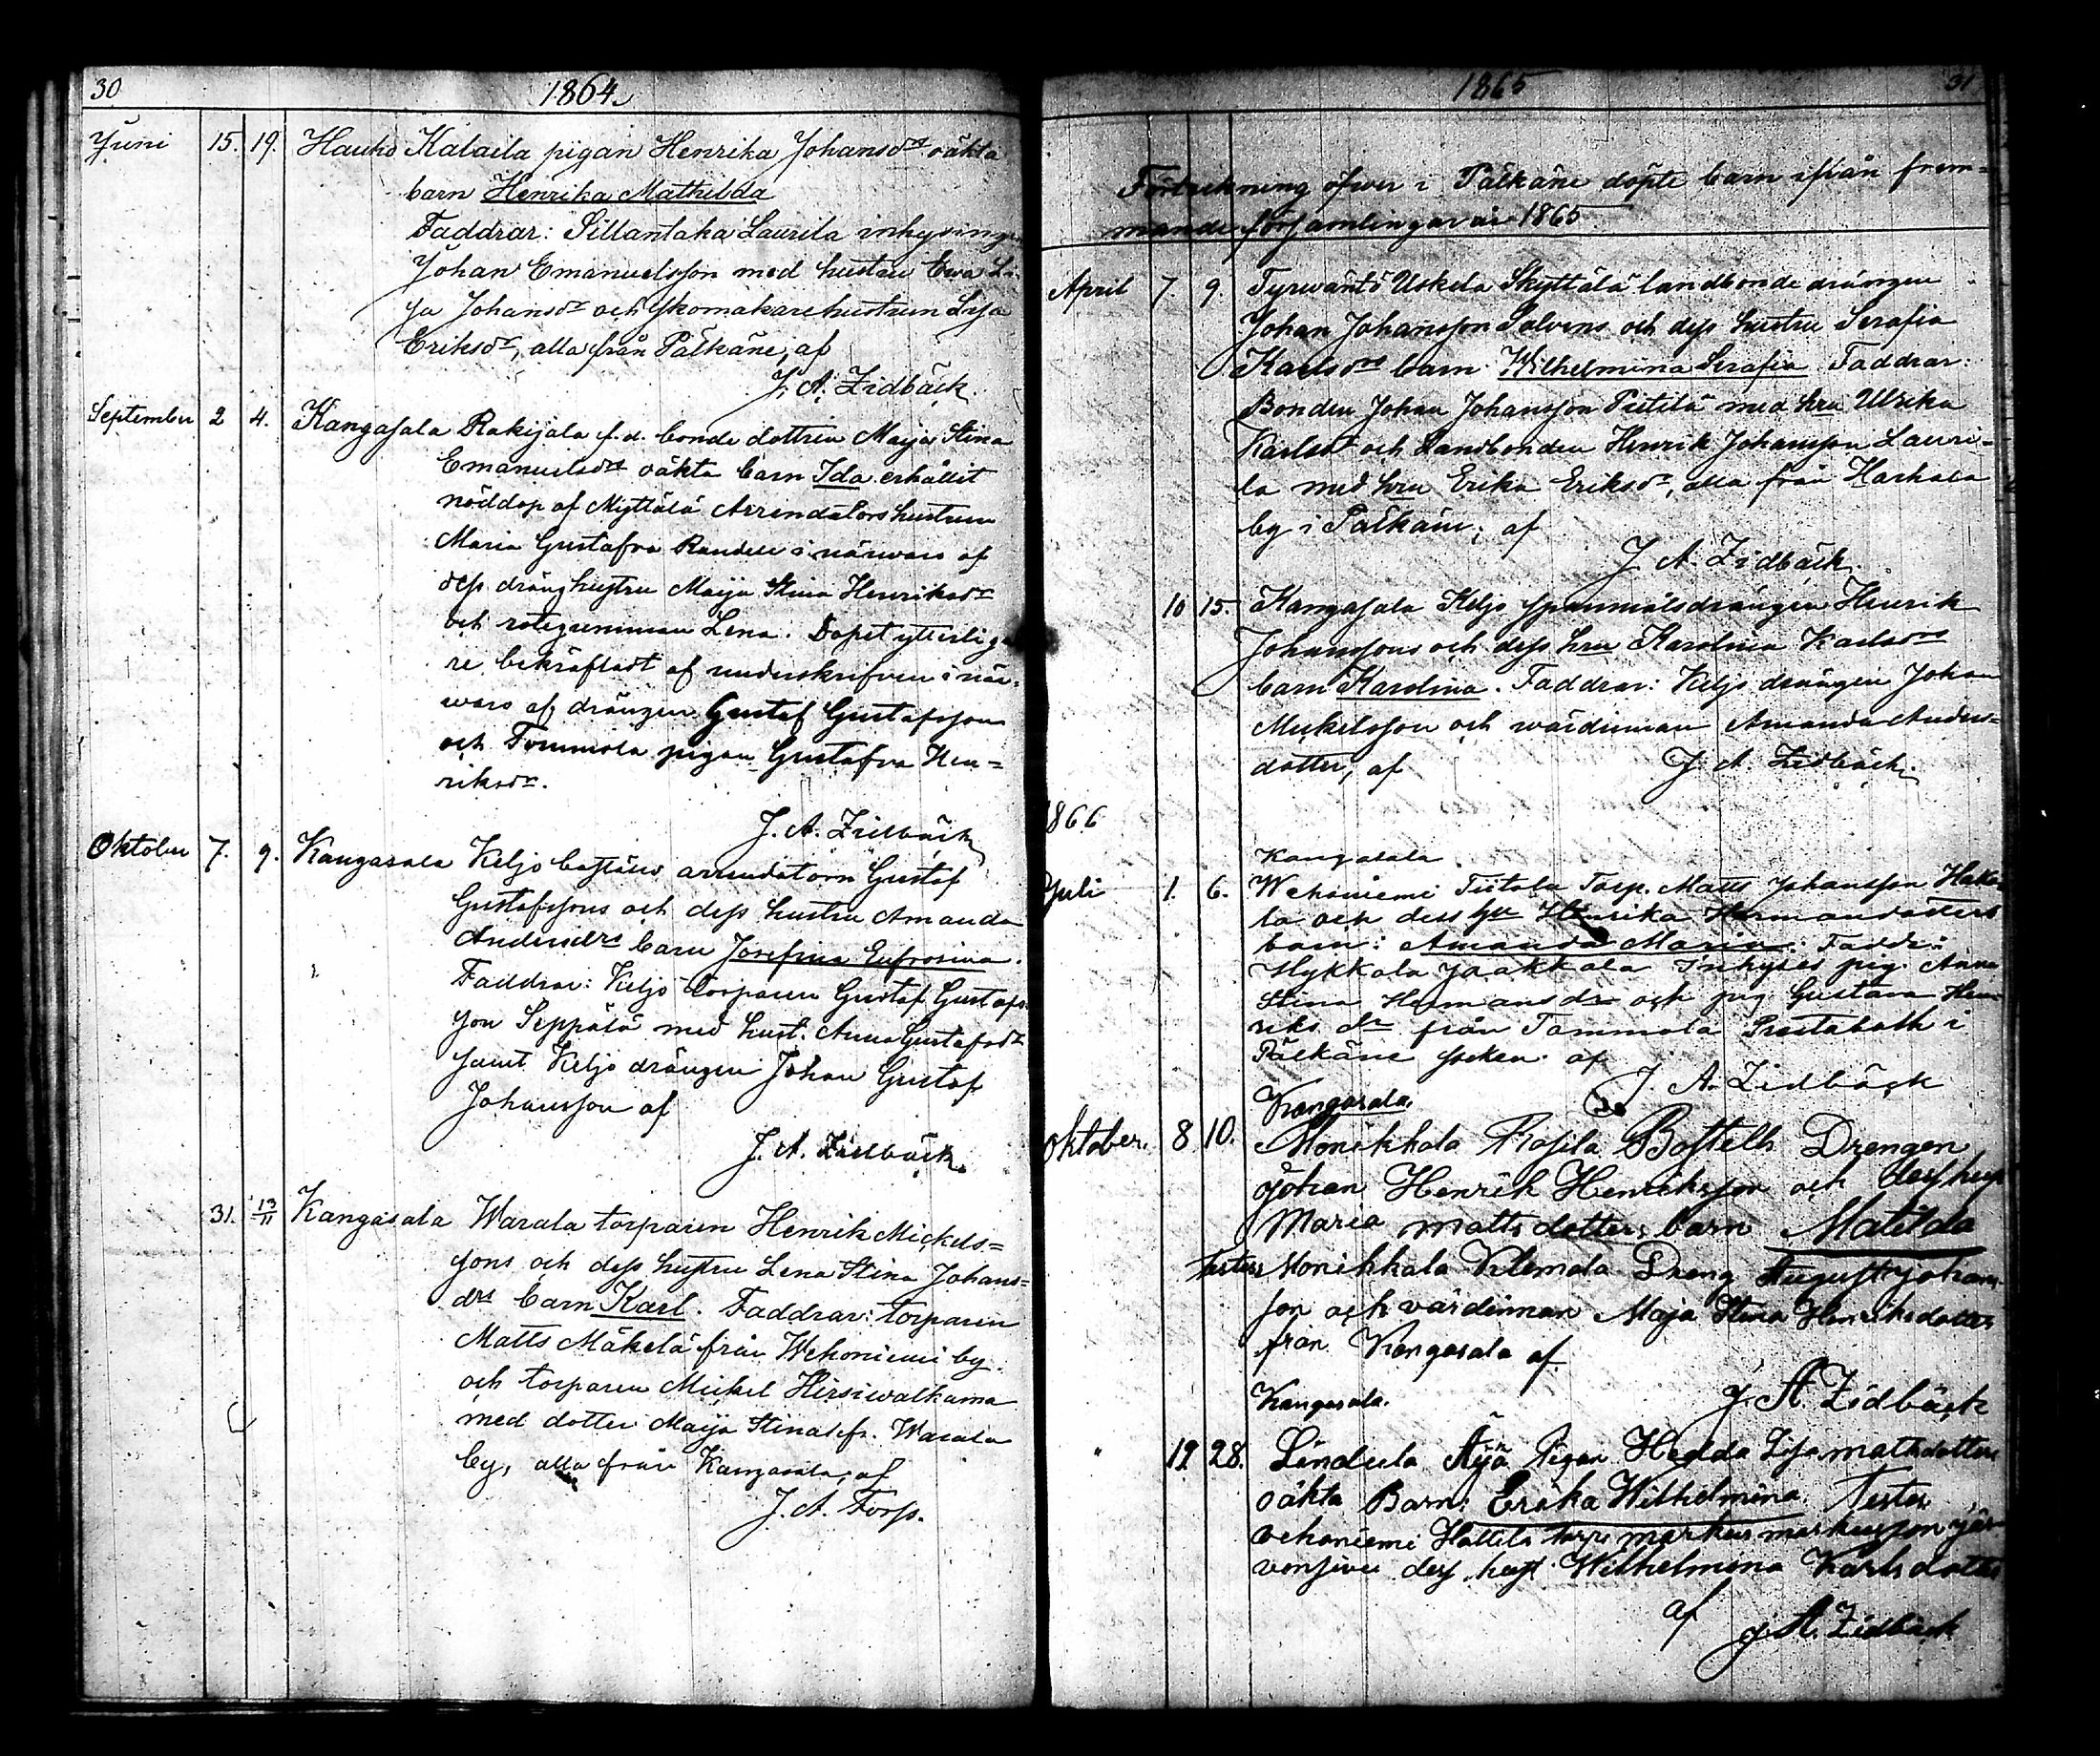 30 1864
Juni 15. 19. Hauho Kalaila pigan Henrika Johansdrs oäkta
barn Henrika Mathilda
Faddrar: Sillantaka Laurila inhysing
Johan Emanuelsson med hustru Ewa Li-
sa Johansdr och skomakarehustrun Lisa
Eriksdr, alla från Pälkäne, af
J. A. Zidbäck.
September 2 4. Kangasala Rakijala f.d. bonde dottren Maija Stina
Emanuelsdrs oäkta barn Ida erhållit
nöddop af Myttälä Arrendatorshustrun
Maria Gustafva Randell i närvaro af
dess dränghustru Maija Stina Henriksdr
och rotegumman Lena. Dopet ytterliga
re bekräftadt af underskrifven i när-
varo af drängen Gustaf Gustafsson
och Tommola pigan Gustafva Hen-
riksdr.
J. A. Zidbäck
Oktober 7. 9. Kangasala Keljo boställs arrendatorn Gustaf
Gustafssons och dess hustru Amanda
Andersdrs barn Josefina Eufrosina.
Faddrar: Keljo torparen Gustaf Gustafs-
son Seppälä med hust. Anna Gustafsdr
samt Keljo drängen Johan Gustaf
Johansson af
J. A. Zidbäck.
31. 13/11 Kangasala Warala torparen Henrik Mickels-
sons och dess hustru Lena Stina Johans-
drs barn Karl. Faddrar: torparen
Matts Mäkelä från Wehoniemi by
och torparen Mickel Hirsiwalkama
med dotter Maija Stina fr. Warala
by, alla från Kangasala, af
J. A. Forss.
1865 31
Förteckning öfver i Pälkäne döpte barn ifrån frem-
mande församlingar år 1865
April 7. 9. Tyrwäntö Uskela Skyttälä landbonde drängen
Johan Johansson Salvens och dess hustru Serafia
Karlsdrs barn Wilhelmina Serafia Faddrar:
Bonden Johan Johansson Pietilä med hru Ulrika
Karlsdr och Landbonden Henrik Johansson Lauri-
la med hru Erika Eriksdr, alla från Harhala
by i Pälkäne, af
J. A. Zidbäck.
10 15. Kangasala Keljo spannmålsdrängen Henrik
Johanssons och dess hru Karolina Karlsdrs
barn Karolina. Faddrar: Keljo drängen Johan
Mickelsson och wärdinnan Amanda Anders-
dotter, af J. A. Zidbäck.
1866
Kangasala
Juli 1. 6. Wehoniemi Tiitola Torp. Matts Johansson Hako
la och dess hu Henrika Hermansdoters
barn: Amanda Maria. Faddr:
Hykkala Jaakkola Inhyses pig. Anna
Stina Hermansdr och pig Gustava Hen-
riks dr från Tommola Prestaboth i
Pälkäne socken. af
J. A. Zidbäck
Kangasala.
Oktober. 8 10. Monikkala Rosila Boställs Drengen
Johan Henrik Henriksson och dess hust
Maria Matts dotters barn Matilda
Testes Monikkala Klemola Dreng August Johans-
son och värdinnan Maja Stina Henriksdotter
från Kangasala af.
J. A Zidbäck
Kangasala.
" 19 28. Lindula Äijä Pigan Hedda Lisa matsdotters
oäkta Barn: Erika Wilhelmina Testes
vehoniemi Hattila torp. markus markusson Jär-
vensivu dess hust Wilhelmina Karlsdotter
af
J. A. Zidbäck